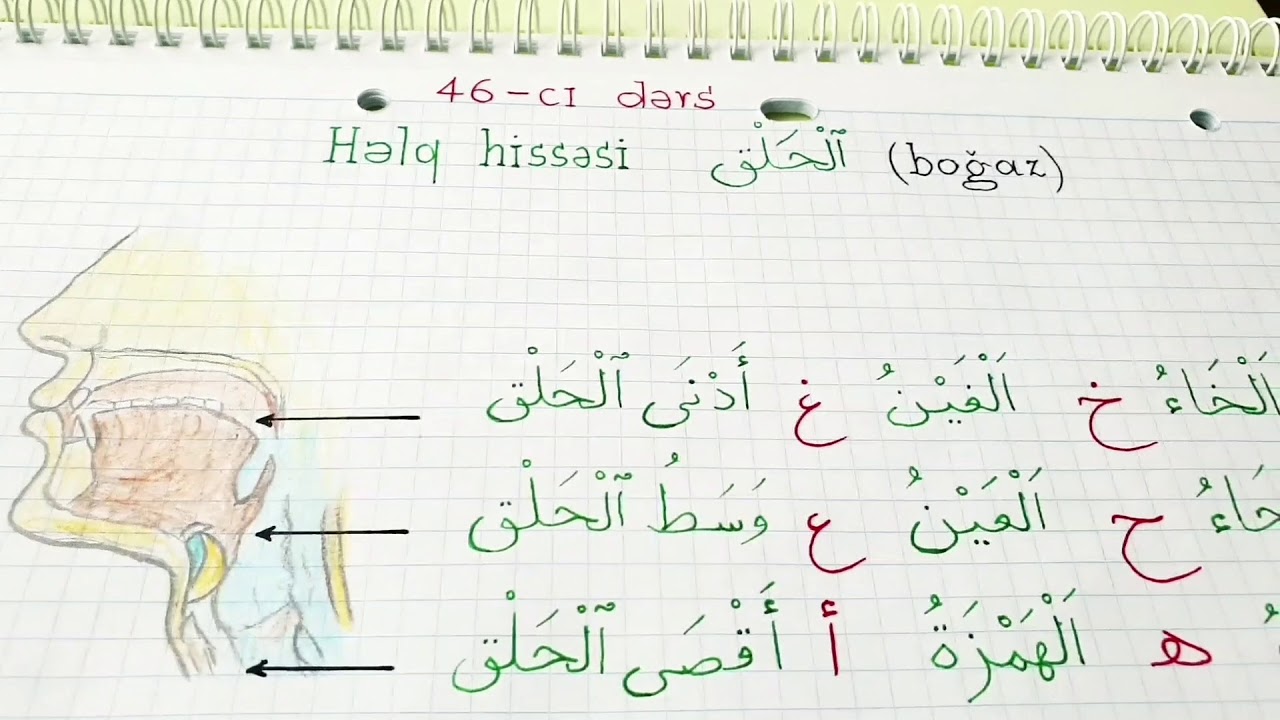 46-CI dərs
Həlq hissəsi ٱلْحَلْق (boğaz)
اَلْخَاءُ خ اَلْغَيْنُ غ أَدْنَى ٱلْحَلْق
حَاءُ ح اَلْعَيْنُ ع وَسَطُ ٱلْحَلْق
ه اَلْهَمْزَةُ أ أَقْصَى ٱلْحَلْق